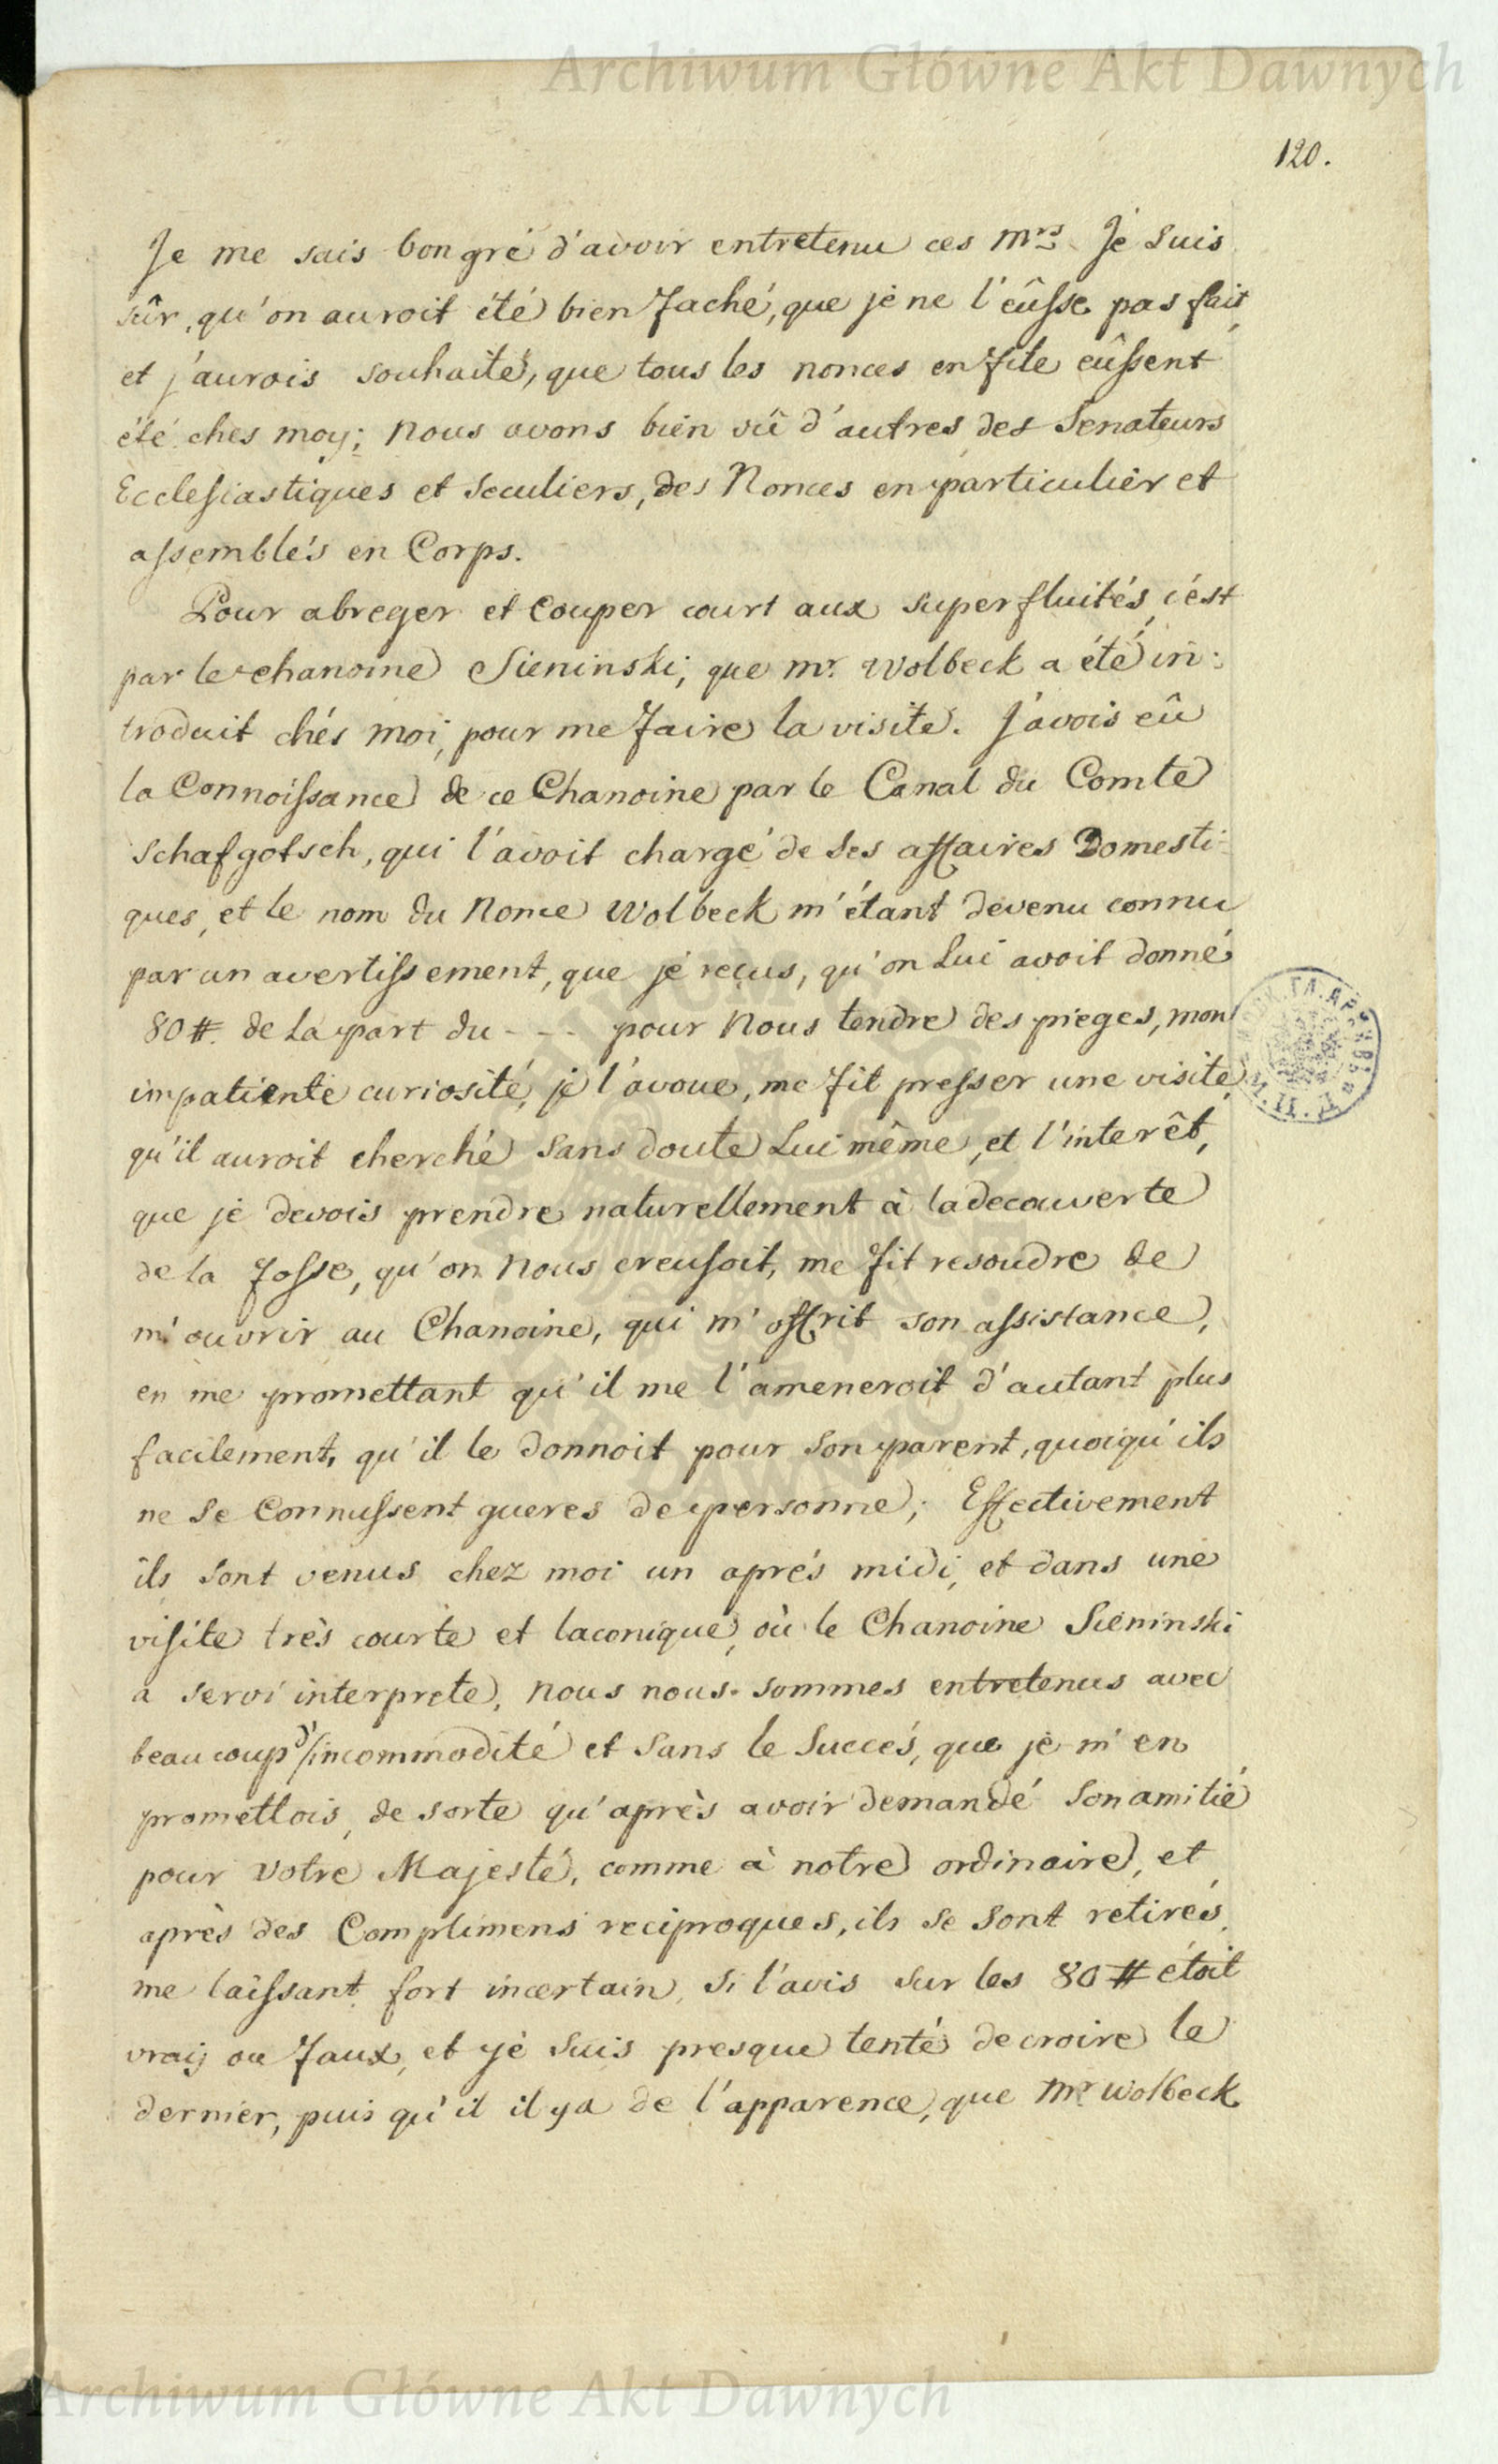 Archiwum Główne Akt Dawnych
120.
Je me sais bon gré d'avoir entretenu ces mrs. Je suis
sûr, qu'on auroit été bien faché, que je ne l'eûsse pas fait,
et j'aurois souhaité, que tous les nonces en file eûssent
été ches moy; nous avons bien vû d'autres des Senateurs
Ecclesiastiques et Seculiers, des Nonces en particulier et
assemblés en Corps.
Pour abreger et couper court aux superfluités, c'est
par le chanoine Sieninski, que mr. Wolbeck a été in:
troduit chés moi, pour me faire la visite. J'avois eû
la Connoissance de ce Chanoine par le Canal du Comte
Schafgotsch, qui l'avoit chargé de ses affaires Domesti-
ques, et le nom du Nonce Wolbeck m'étant devenu connu
par un avertissement, que je reçus, qu'on Lui avoit donné
80 #. de la part du - - - pour Nous tendre des pieges, mon
impatiente curiosité, je l'avoue, me fit presser une visite,
qu'il auroit cherché sans doute Lui même, et l'interêt,
que je devois prendre naturellement à la decouverte
de la fosse, qu'on Nous creusoit, me fit resoudre de
m'ouvrir au Chanoine, qui m'offrit son assistance,
en me promettant qu'il me l'ameneroit d'autant plus
facilement, qu'il le donnoit pour son parent, quoiqu'ils
ne se Connussent gueres de personne; Effectivement
ils sont venus chez moi un aprés midi, et dans une
visite très courte et laconique, où le Chanoine Sieninski
a servi interprete, nous nous sommes entretenus avec
beaucoup d'incommodité et sans le Succés, que je m'en
promettois, de sorte qu'après avoir demandé Son amitié
pour Votre Majesté, comme à notre ordinaire, et
après des Complimens reciproques, ils se sont retirés,
me laissant fort incertain, si l'avis sur les 80 # étoit
vraij ou faux, et je suis presque tenté de croire le
dernier, puis qu'il il y a de l'apparence, que Mr Wolbeck
Archiwum Główne Akt Dawnych